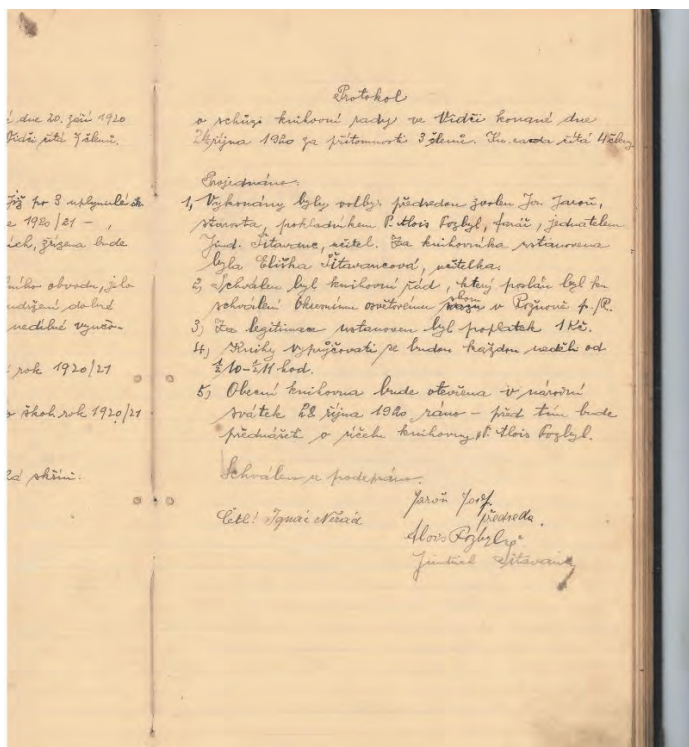 í dne 20. září 1920
Vidči čítá 7 členů.
e 1920/21 - ,
ích, zřízena bude
ního obvodu, jelo
udržení dobré
nedělně vyučo-
rok 1920/21
škol. rok 1920/21
skříni.
Protokol
o schůzi knihovní rady ve Vidči konané dne
října 1920 za přítomnosti 3 členů. Kn. rada čítá 4 členy
Projednáno:
1, Vykonány byly volby: předsedou zvolen Jos. Jaroň,
starosta, pokladníkem P. Alois Pozbyl, farář, jednatelem
Jind. Šitavanc, učitel. Za knihovníka ustanovena
byla Eliška Šitavancová, učitelka.
2, Schválen byl knihovní řád, který poslán byl ke
schválení Okresnímu osvětovému sboru v Rožnově p./R.
3) Za legitimace ustanoven byl poplatek 1 Kč.
4) Knihy vypůjčovati se budou každou neděli od
½10-½11 hod.
5) Obecní knihovna bude otevřena v národní
svátek 28 října 1920 ráno - před tím bude
přednášet o účelu knihovny P. Alois Pozbyl.
Schváleno a podepsáno.
Jaroň Josef
předseda.
Četl: Ignác Neřád
Alois Pozbyl
Jindřich Šitavanc